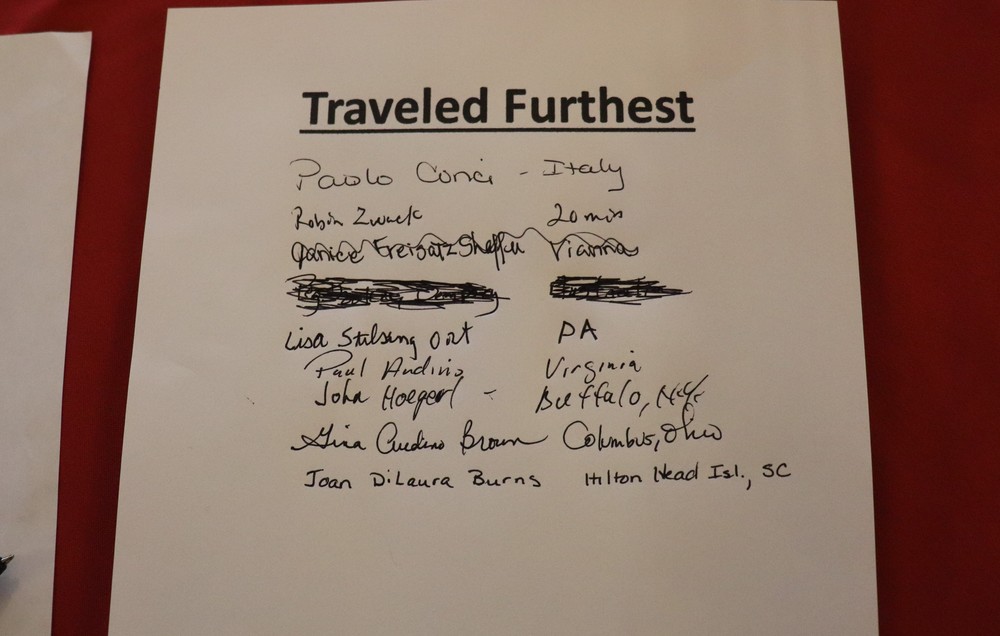 Traveled Furthest
Paolo Conci - Italy
Robin Zwack 20 min
Janice Freisatz Sheffer Vianna
Lisa Stilsing Ort PA
Paul Andino Virginia
John Hoegerl - Buffalo, NY
Gina Brown Columbus, Ohio
Joan DiLaura Burns Hilton Head Isl., SC